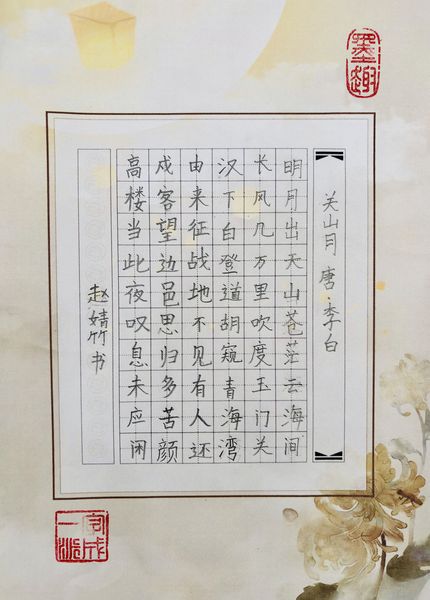 墨趣
关山月 唐·李白
明月出天山苍茫云海间
长风几万里吹度玉门关
汉下白登道胡窥青海湾
由来征战地不见有人还
戍客望边邑思归多苦颜
高楼当此夜叹息未应闲
赵婧竹书